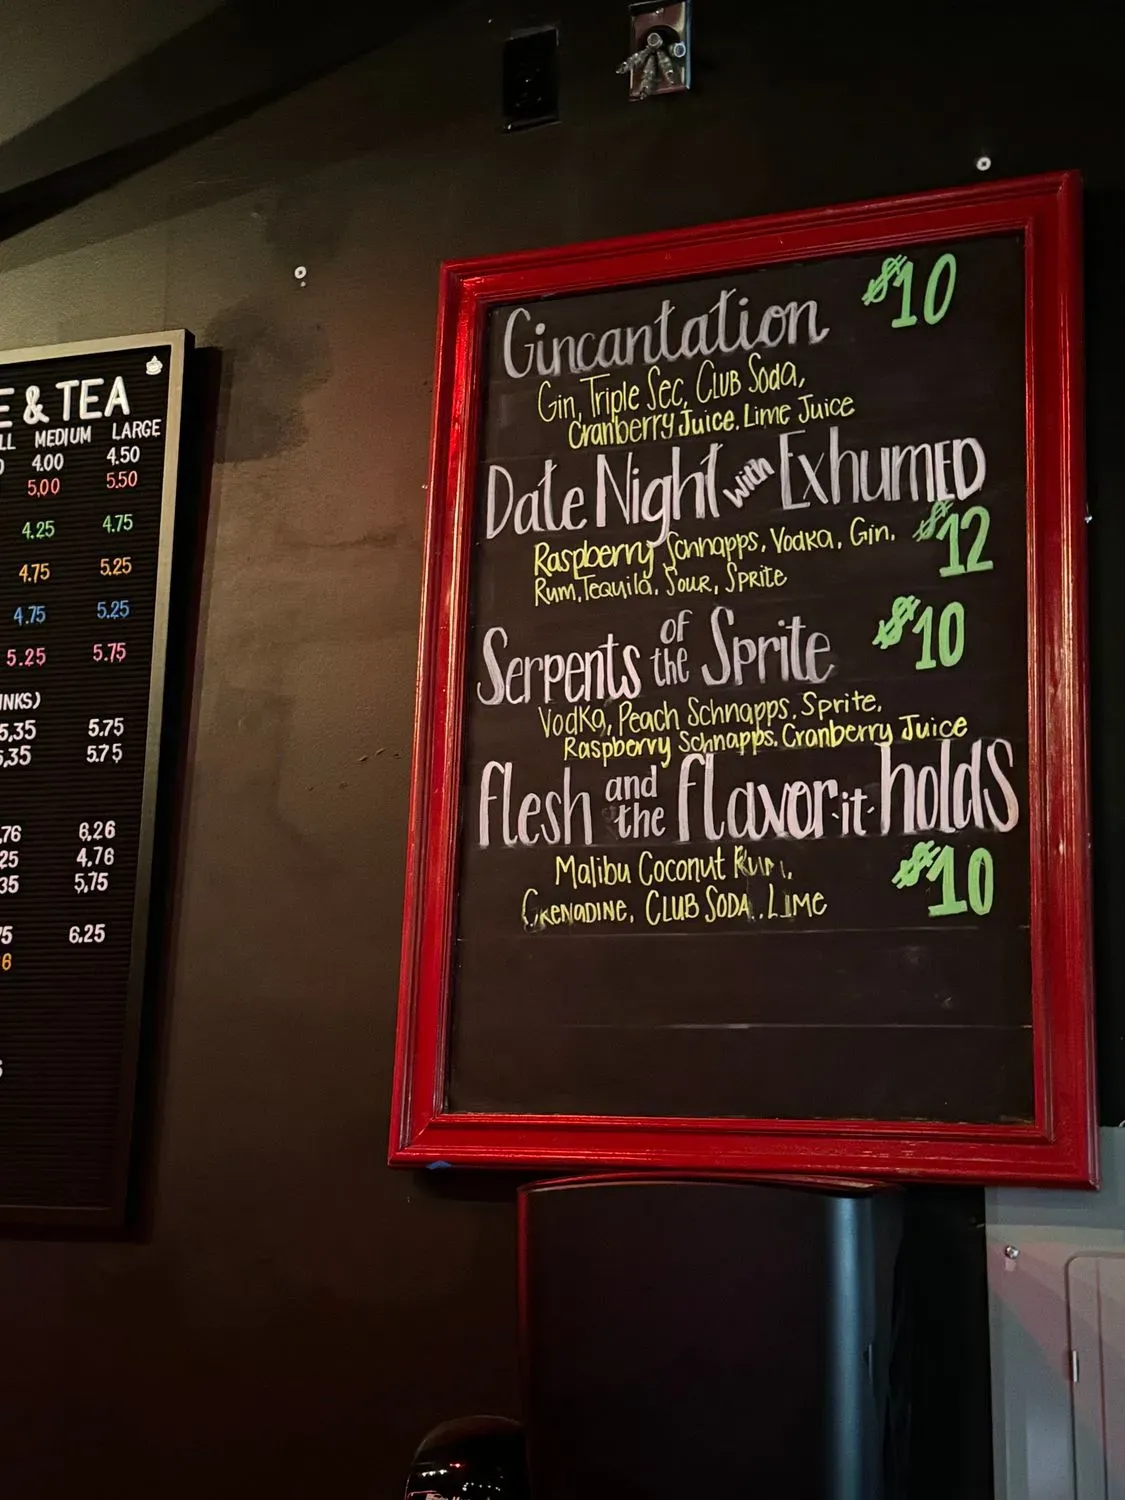 & TEA
MEDIUM LARGE
4.00 4.50
5.00 5.50
4.25 4.75
4.75 5.25
4.75 5.25
5.25 5.75
5.35 5.75
5.75
6.26
4.76
5.75
6.25
Gincantation $10
Gin, Triple Sec, Club Soda,
Cranberry Juice, Lime Juice
Date Night with Exhumed
Raspberry Schnapps, Vodka, Gin, $12
Rum, Tequila, Sour, Sprite
Serpents of the Sprite $10
Vodka, Peach Schnapps, Sprite,
Raspberry Schnapps, Cranberry Juice
Flesh and the Flavor-it-holds
Malibu Coconut Rum, $10
Grenadine, Club Soda, Lime